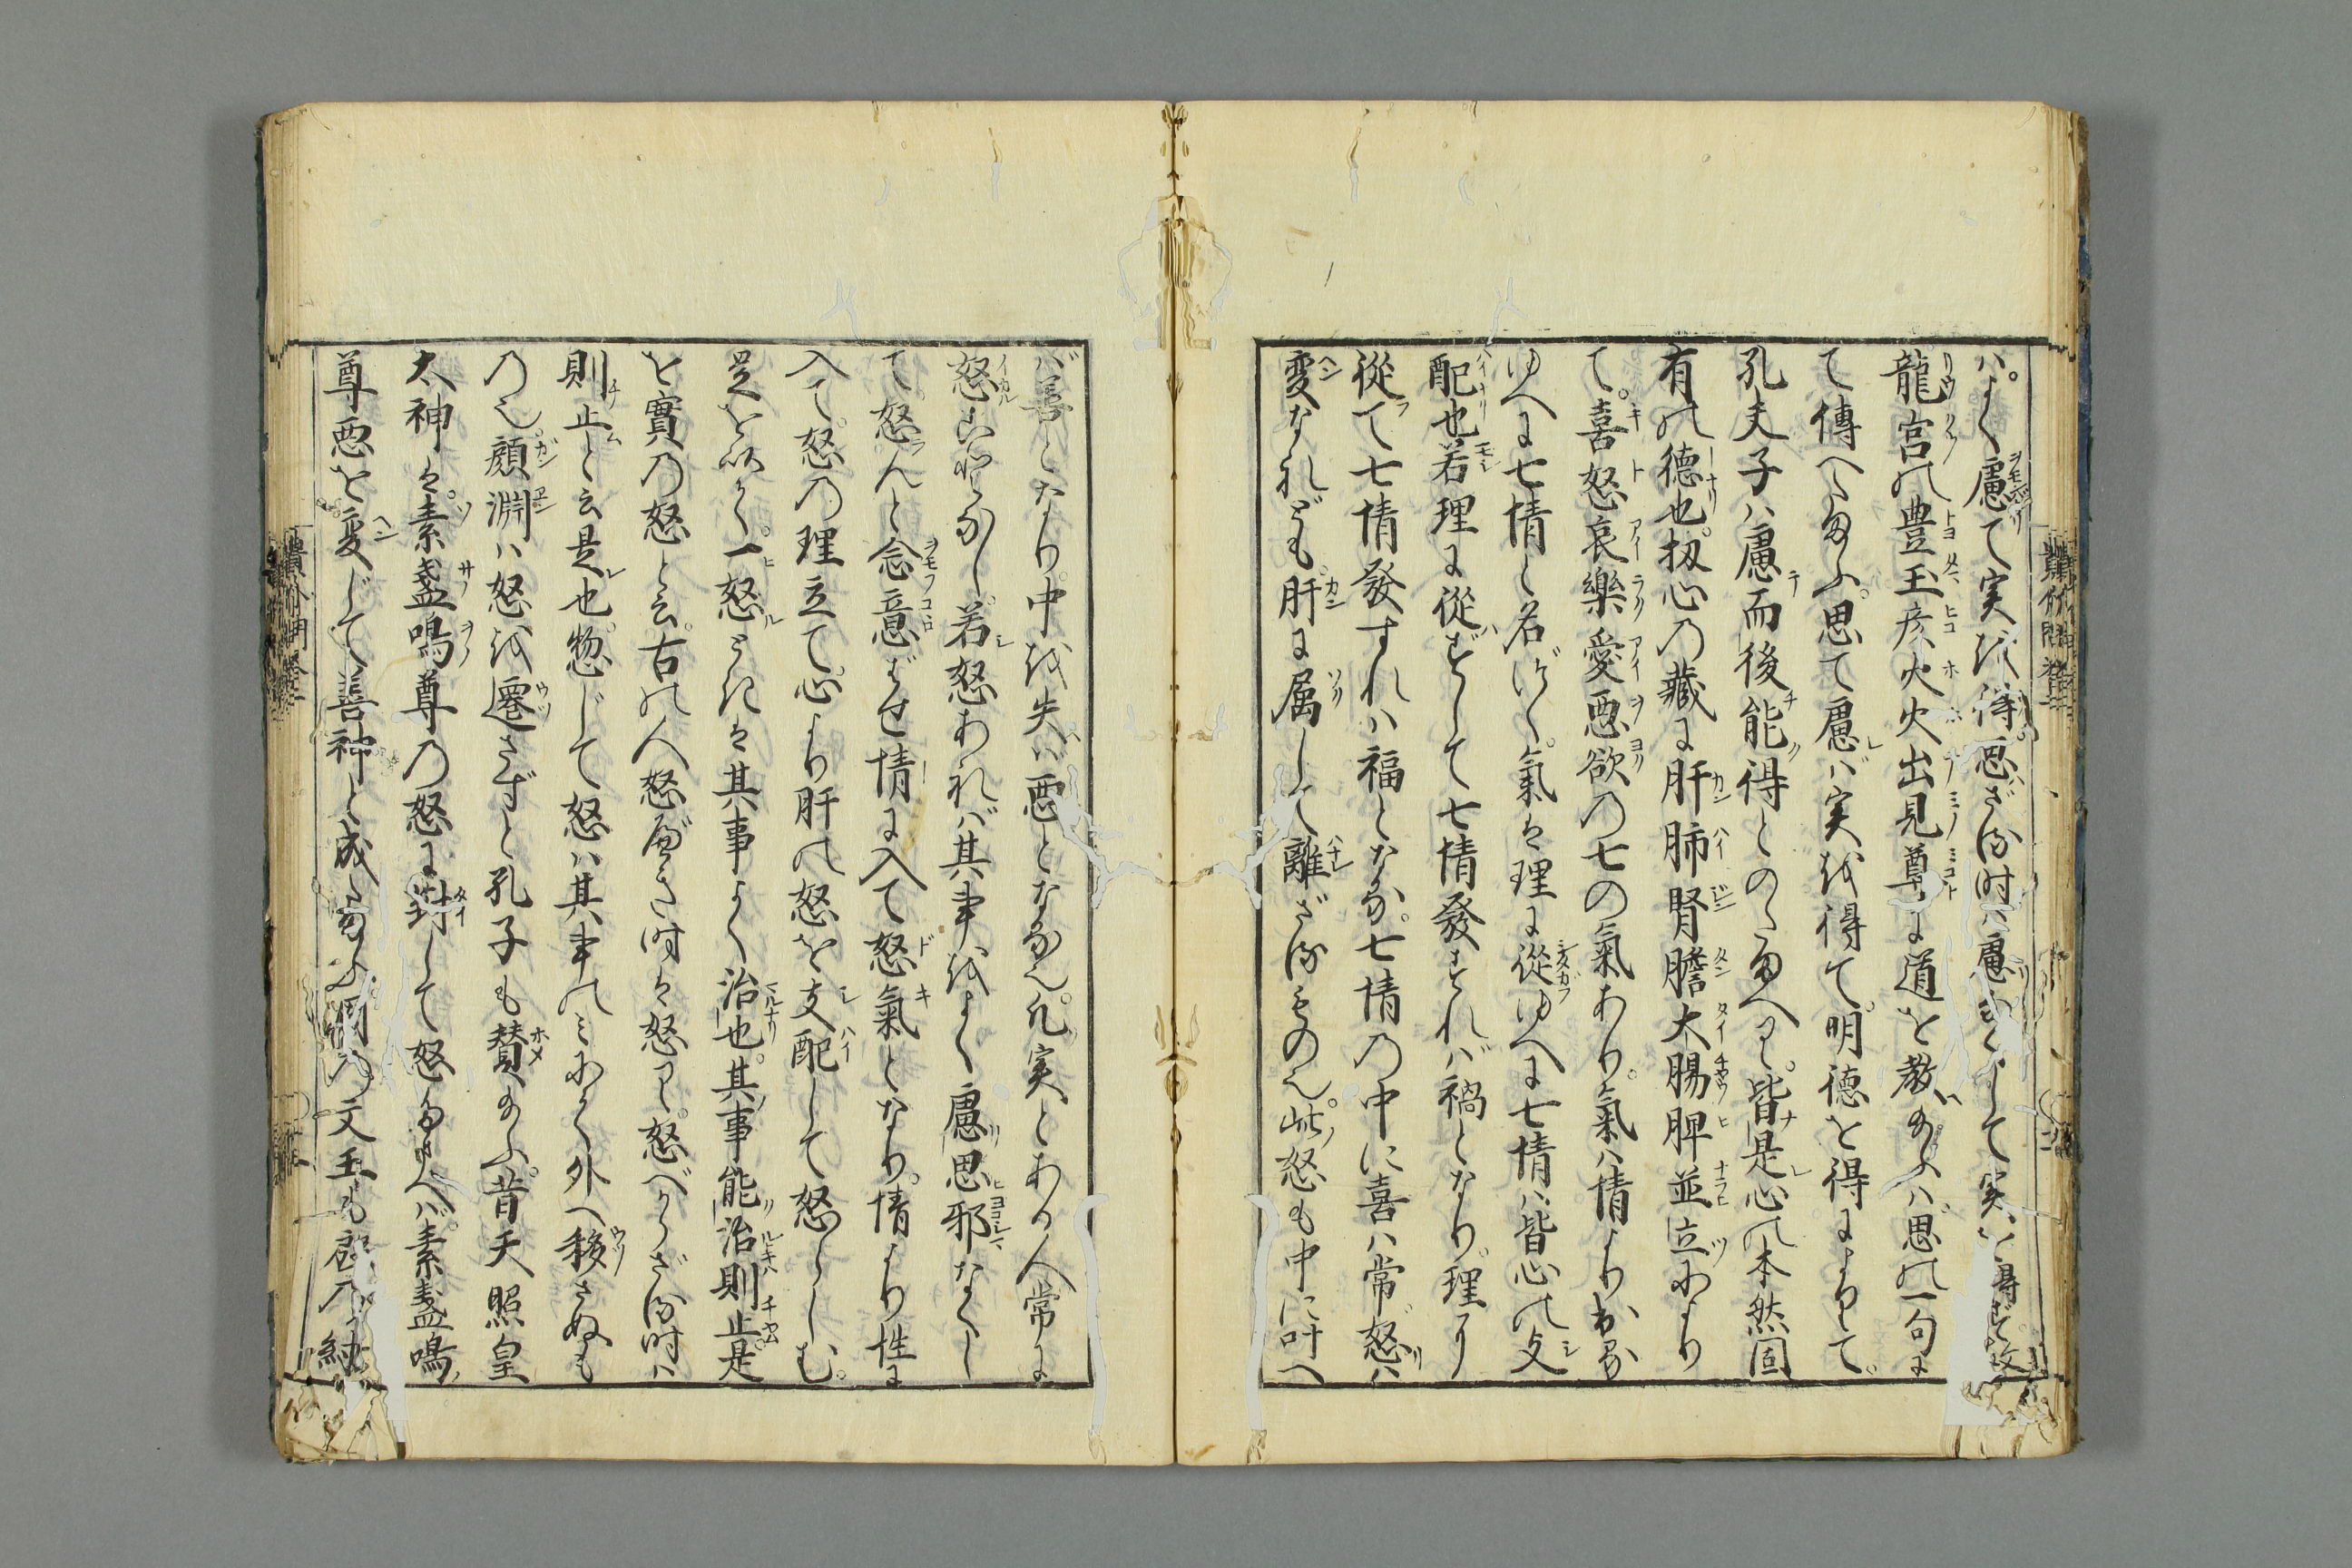 ハよく慮て実を得思ざる時ハ慮もなくして実を得ず故
龍宮の豊玉彦火火出見尊に道を教給ふハ思の一句に
て傳へ給ふ思て慮バ実を得て明徳を得によりて
孔夫子ハ慮而後能得とのたまへり皆是心の本然固
有の徳也扨心の藏に肝肺腎膽大腸脾並立によ り
て喜怒哀樂愛悪欲の七の氣あり氣ハ情より出る
ゆへに七情と名づく氣は理に從ゆへに七情ハ皆心の支
配也若理に從ずして七情發すれバ禍となり理に
從て七情發すれハ福となる七情の中に喜ハ常怒ハ
変なれども肝に属して離ざるもの也此怒も中に叶へ
バ善となり中を失ハ悪となる也凡実とある人常に
怒ることなし若怒あれバ其事をよく慮思邪なくし
て怒んと念意がせ情に入て怒氣となり情より性に
入て怒の理立て心より肝の怒を支配して怒らしむ
是を以てく一怒ときは其事よく治也其事能治則止是
を實の怒と云古の人怒べき時は怒り怒べからざる時ハ
則止と云是也惣じて怒ハ其事のみにて外へ移さぬも
の也顔淵ハ怒を遷さずと孔子も賛給ふ昔天照皇
太神は素盞嗚尊の怒に對して怒給まへバ素盞嗚
尊悪を変じて善神と成給ふ周の文王も殷の紂